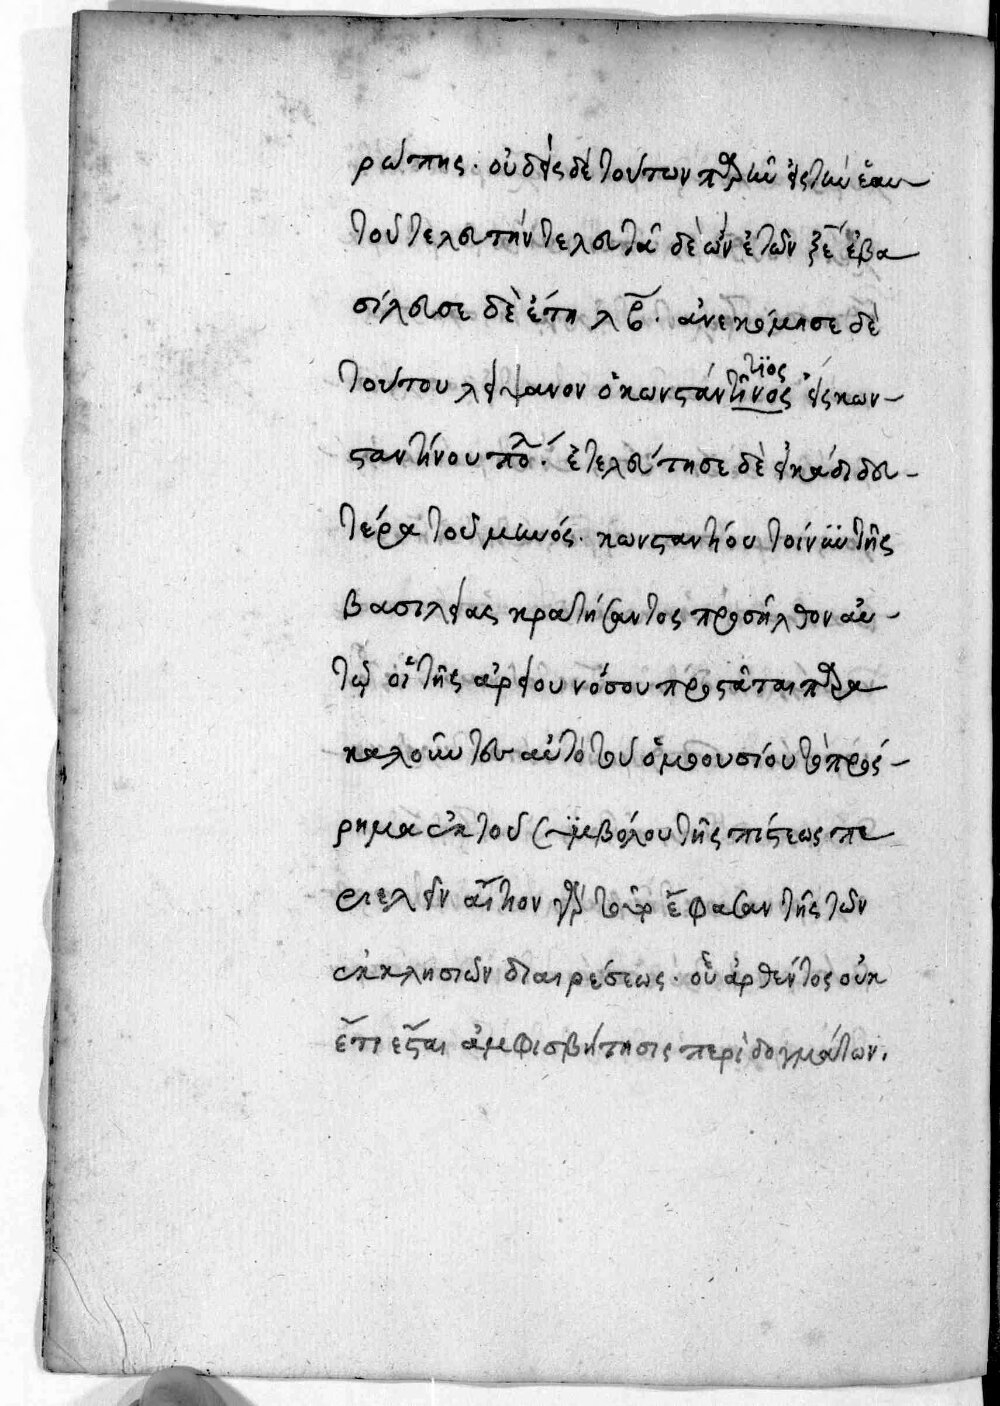 ρώπης. οὐδεὶς δὲ τούτων παρῆν εἰς τὴν ἑαυ
τοῦ τελευτήν τελευτᾶ δὲ ὢν ἐτῶν ξε ἐβα
σίλευσε δὲ ἔτη λβ. ἀνεκόμησε δὲ
τούτου λείψανον ὁ κωνσταντῖνος τϊος εἰς κων-
σταντίνου πολ. ἐτελεύτησε δὲ εἰκάδι δευ-
τέρα τοῦ μηνός. κωνσταντίου τοίνυν τῆς
βασιλείας κρατήσαντος προσῆλθον αυ-
τῷ οἱ τῆς αρείου νόσου προστάται παρα
καλοῦντες αὐτὸ τοῦ ὁμοουσίου τὸ πρός-
ρημα ἐκ τοῦ συμβόλου τῆς πίστεως πε
ριελεῖν αἴτιον γὰρ τοῦτο ἔφασαν τῆς τῶν
ἐκκλησιῶν διαιρέσεως. οὗ ἀρθέντος οὐκ
ἔτι ἔσται ἀμφισβήτησις περὶ δογμάτων.